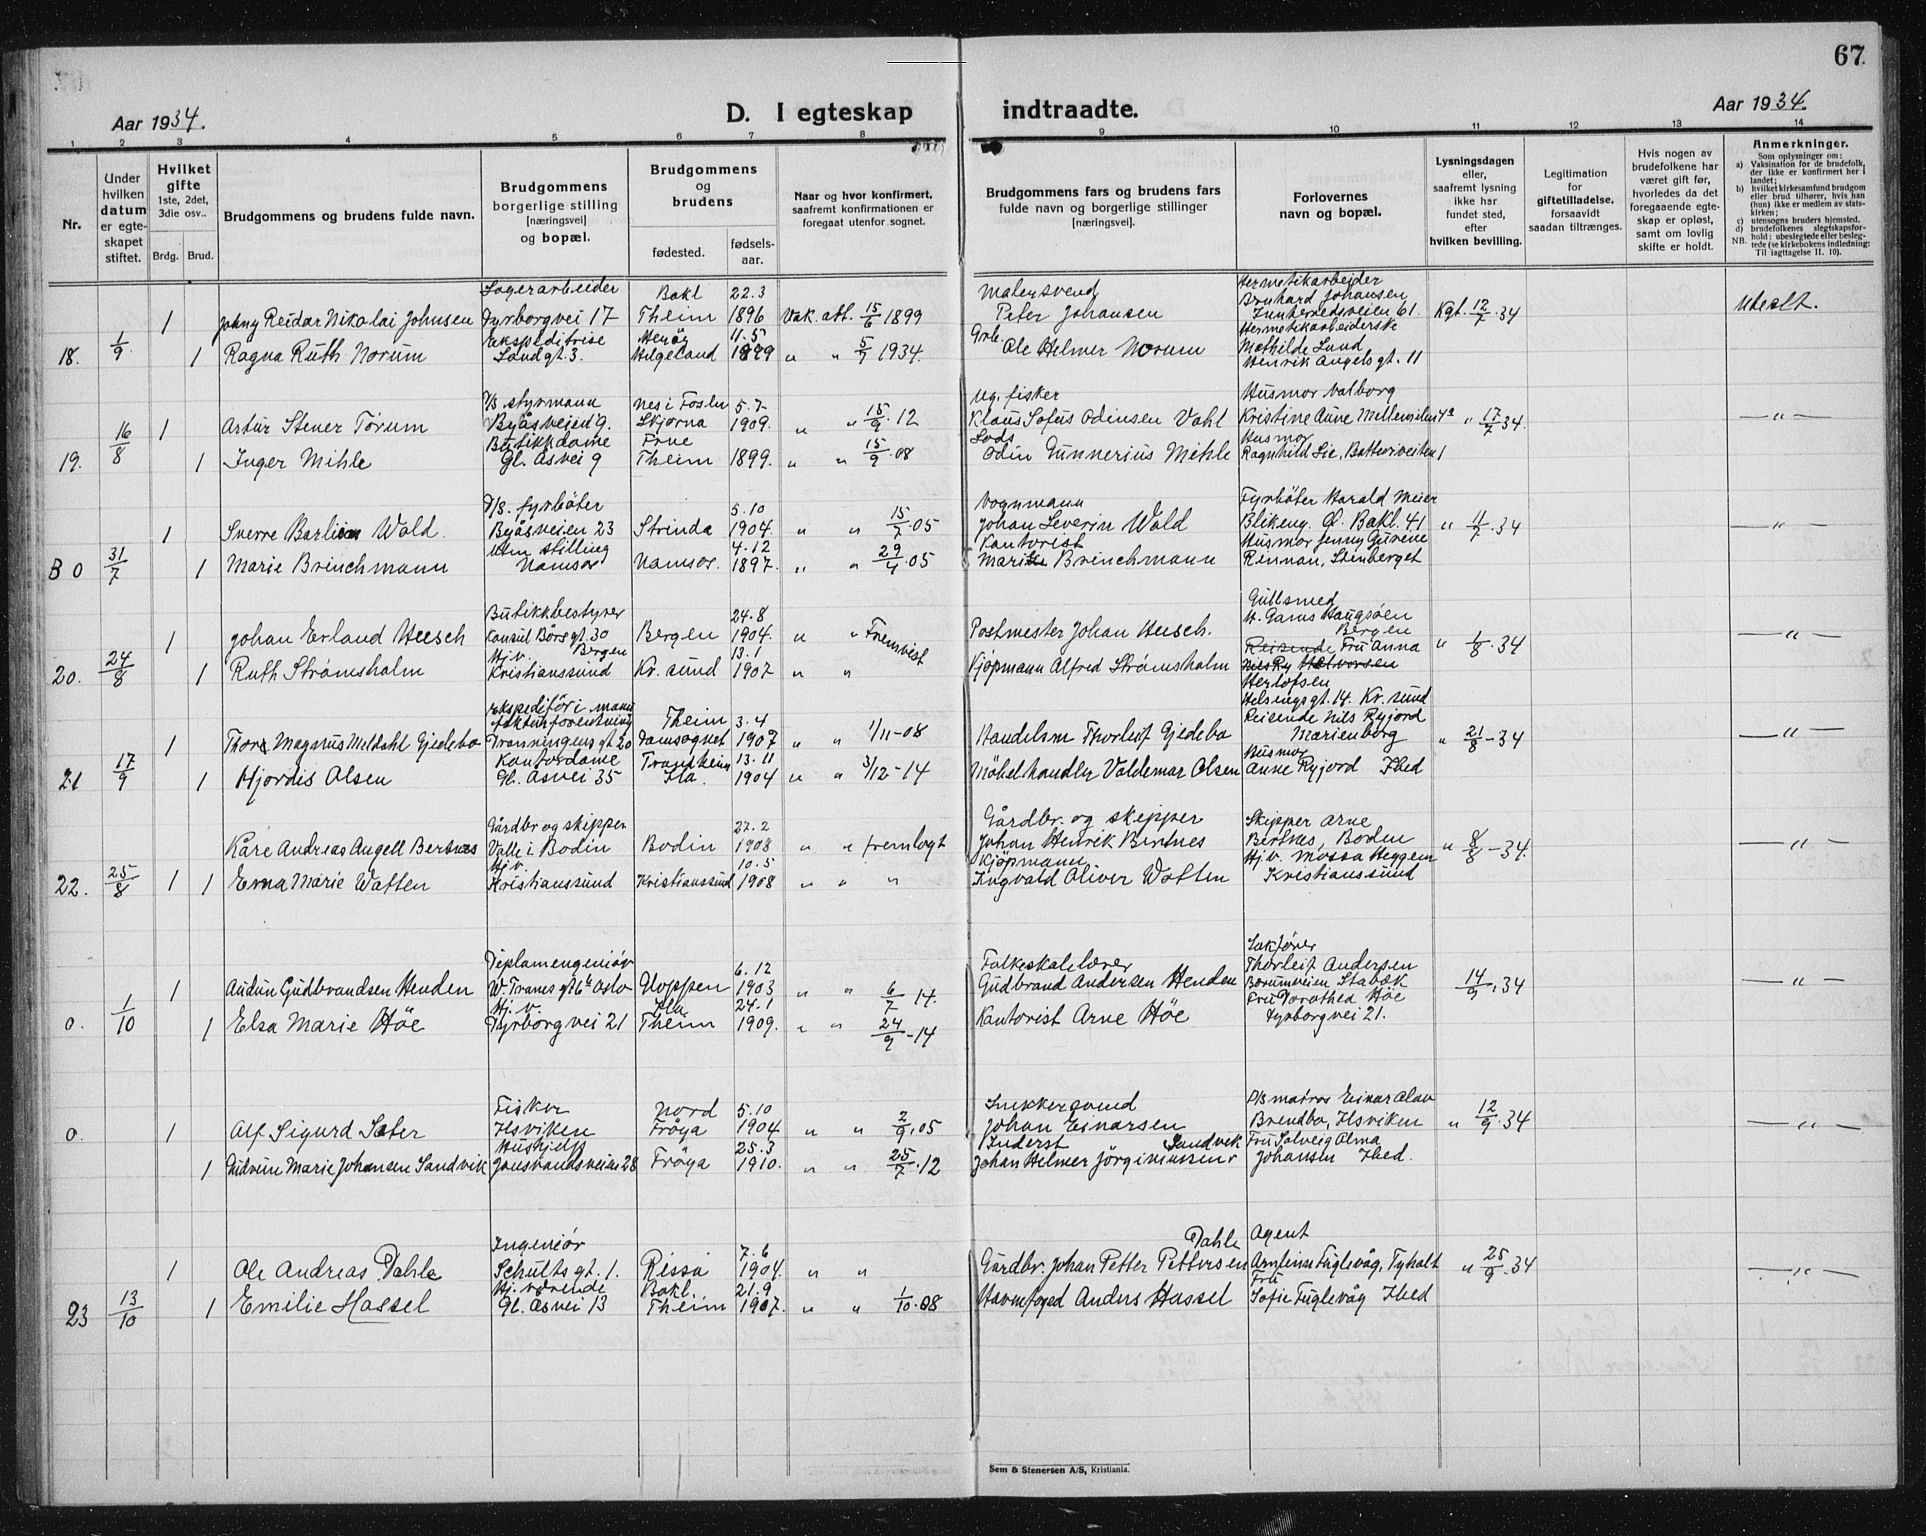 67
Aar 1934. D. I egteskap indtraadte. Aar 1934.
1 2 3 4 5 6 7 8 9 10 11 12 13 14
Nr.
Under hvilken datum er egteskapet stiftet.
Hvilket gifte 1ste, 2det, 3die osv..
Brdg. Brud.
Brudgommens og brudens fulde navn.
Brudgommens borgerlige stilling [næringsvei] og bopæl.
Brudgommens og brudens
fødested. fødsels-aar.
Naar og hvor konfirmert, saafremt konfirmationen er foregaat utenfor sognet.
Brudgommens fars og brudens fars fulde navn og borgerlige stillinger [næringsvei].
Forlovernes navn og bopæl.
Lysningsdagen eller, saafremt lysning ikke har fundet sted, efter hvilken bevilling.
Legitimation for giftetilladelse, forsaavidt saadan tiltrænges.
Hvis nogen av brudefolkene har været gift før, hvorledes da det foregaaende egteskap er opløst, samt om lovlig skifte er holdt.
Anmerkninger.
Som oplysninger om:
a) Vaksination for de brudefolk, der ikke er konfirmert her i landet;
b) hvilket kirkesamfund brudgom eller brud tilhører, hvis han (hun) ikke er medlem av statskirken;
c) utensogns bruders hjemsted.
d) brudefolkenes slegtskapsforhold; ubeslegtede eller beslegtede (se kirkebokens indledning:
NB. Til iagttagelse II. 10).
Lagerarbeider Bakl 22.3 Malersvend Hermetikarbeider
1 Johny Reidar Nikolai Johnsen Fyrborgvei 17 Theim 1896 Vak. att. 15/6 1899 Peter Johansen Bernhard Johansen Innherredsveien 61. Kgt. 12/7. 34 Ubeslt.
Ekspeditrise Herøy 11.5 Grb. Hermetikarbeiderske
18. 1/9. 1 Ragna Ruth Norum Sandgt. 3. Helgeland 1899 " " 5/7 1934. Ole Helmer Norum Mathilde Lund Henrik Angels gt. 11
D/S styrmann Nes i Fosen 5.7- Ug. fisker Husmor Valborg
1 Artur Stener Tørum Byåsveien 9. 1909. " " 15/9. 12 Klaus Sofus Odinsen Vahl Kristine Aune " 17/7 34. — " —
Butikkdame Ihne Lods Husmor
19. 16/8 1 Inger Mihle Gl. Åsvei 9 Theim 1899. " " 15/9. 08 Odin Gunnerius Mihle Ragnhild Lie,
D/S. fyrbøter 5.10 Vognmann Fyrbøter Harald Meier
1 Sverre Barlien Wold. Byåsveien 23 Strinda 1904. " " 15/7. 05 Johan Severin Wold Blikeng. Ø. Bakl. 41 " 11/7. 34 — " —
Uten stilling 4.12 Kantorist Husmor Jenny Gurine
B 0 31/7 1 Marie Brinchmann Namsos Namsos. 1897. " " 29/4. 05 Brinchmann Rennan, Stenberget
Butikkbestyrer 24.8 Gullsmed
1 Johan Erland Heesch Konsul Børs gt. 30 Bergen Bergen 1904. " " Fremvist Postmester Johan Heesch. Bergen " 1/8. 34 — " —
Hj. v. 13.1 Reisende Fru Anna
20. 24/8 1 Ruth Strømsholm Kristianssund Kr. sund 1907 " " Kjøpmann Alfred Strømsholm Herlofsen
Kr. sund
Theim 3.4 Reisende Nils Ryjord
1 Magnus Meldahl Gjedebo Domsognet 1907 " " 1/11-08 Handelsm Thorleif Gjedebo Marienborg " 21/8-34 — " —
Kontordame Trondheim 13.11 Husmor
21 17/9 1 Hjordis Olsen Gl. Åsvei 35 Ila. 1904 " " 3/12-14 Møbelhandler Valdemar Olsen Anne Ryjord Ibed
Gårdbr og skipper 27.2 Gårdbr. og skipper Skipper Arne
Kåre Andreas Angell Bertnes Valle i Bodin Bodin 1908 " " fremlagt Johan Henrik Bertnes Bertnes, Bodin " 8/8-34. — " —
Hj. v. 10.5 Kjøpmann Hj. v. Mossa Heggem
22. 25/8 1 1 Erna Marie Watten Kristianssund Kristianssund 1908 " " " Ingvald Oliver Watten Kristianssund
Diplomengeniør 6.12 Folkeskolelærer Sakfører Thorleif Andersen
1 Audun Gudbrandsen Henden W. Tranes gt 6b Oslo Gloppen 1903 " " 6/7-14. Gudbrand Andersen Henden Borumveien Stabæk 14/9. 34 — " —
Hj. v. Ila 24.1 Fru Dorothea Höe
0. 1/10 1 Elsa Marie Höe Fyrborgvei 21 Theim 1909. " " 24/9-14 Kantorist Arne Höe Fyrborgvei 21.
Fisker Nord 5.10 Snekkersvend D/S matros Einar Olav
0. 1 Alf Sigurd Sæter Ilsviken Frøya 1904 " " 2/9. 05 Johan Einarsen Brendbo, Ilsviken " 12/9. 34 — " —
Hushjelp 25.3 Inderst Sandvik Fru Solveig Alma
1 Gudrun Marie Johansen Sandvik Jonsvandsveien 28 Frøya 1910. " " 25/7. 12 Johan Helmer Jørginiussen Johansen Ibed.
Ingeniør 7.6 Dahle Agent
1 Ole Andreas Dahle Schults gt. 1. Rissa 1904. " " Gårdbr. Johan Petter Pettersen Fuglevåg, Tyholt " 25/9. 34 — " —
Hj. værende Bakl. 21.9 Fru
23 13/10 1 Emilie Hassel Gl. Åsvei 13 Theim 1907. " " 1/10. 08 Havnefoged Anders Hassel Sofie Fuglevåg Ibed
Sem & Stenersen A/S, Kristiania.